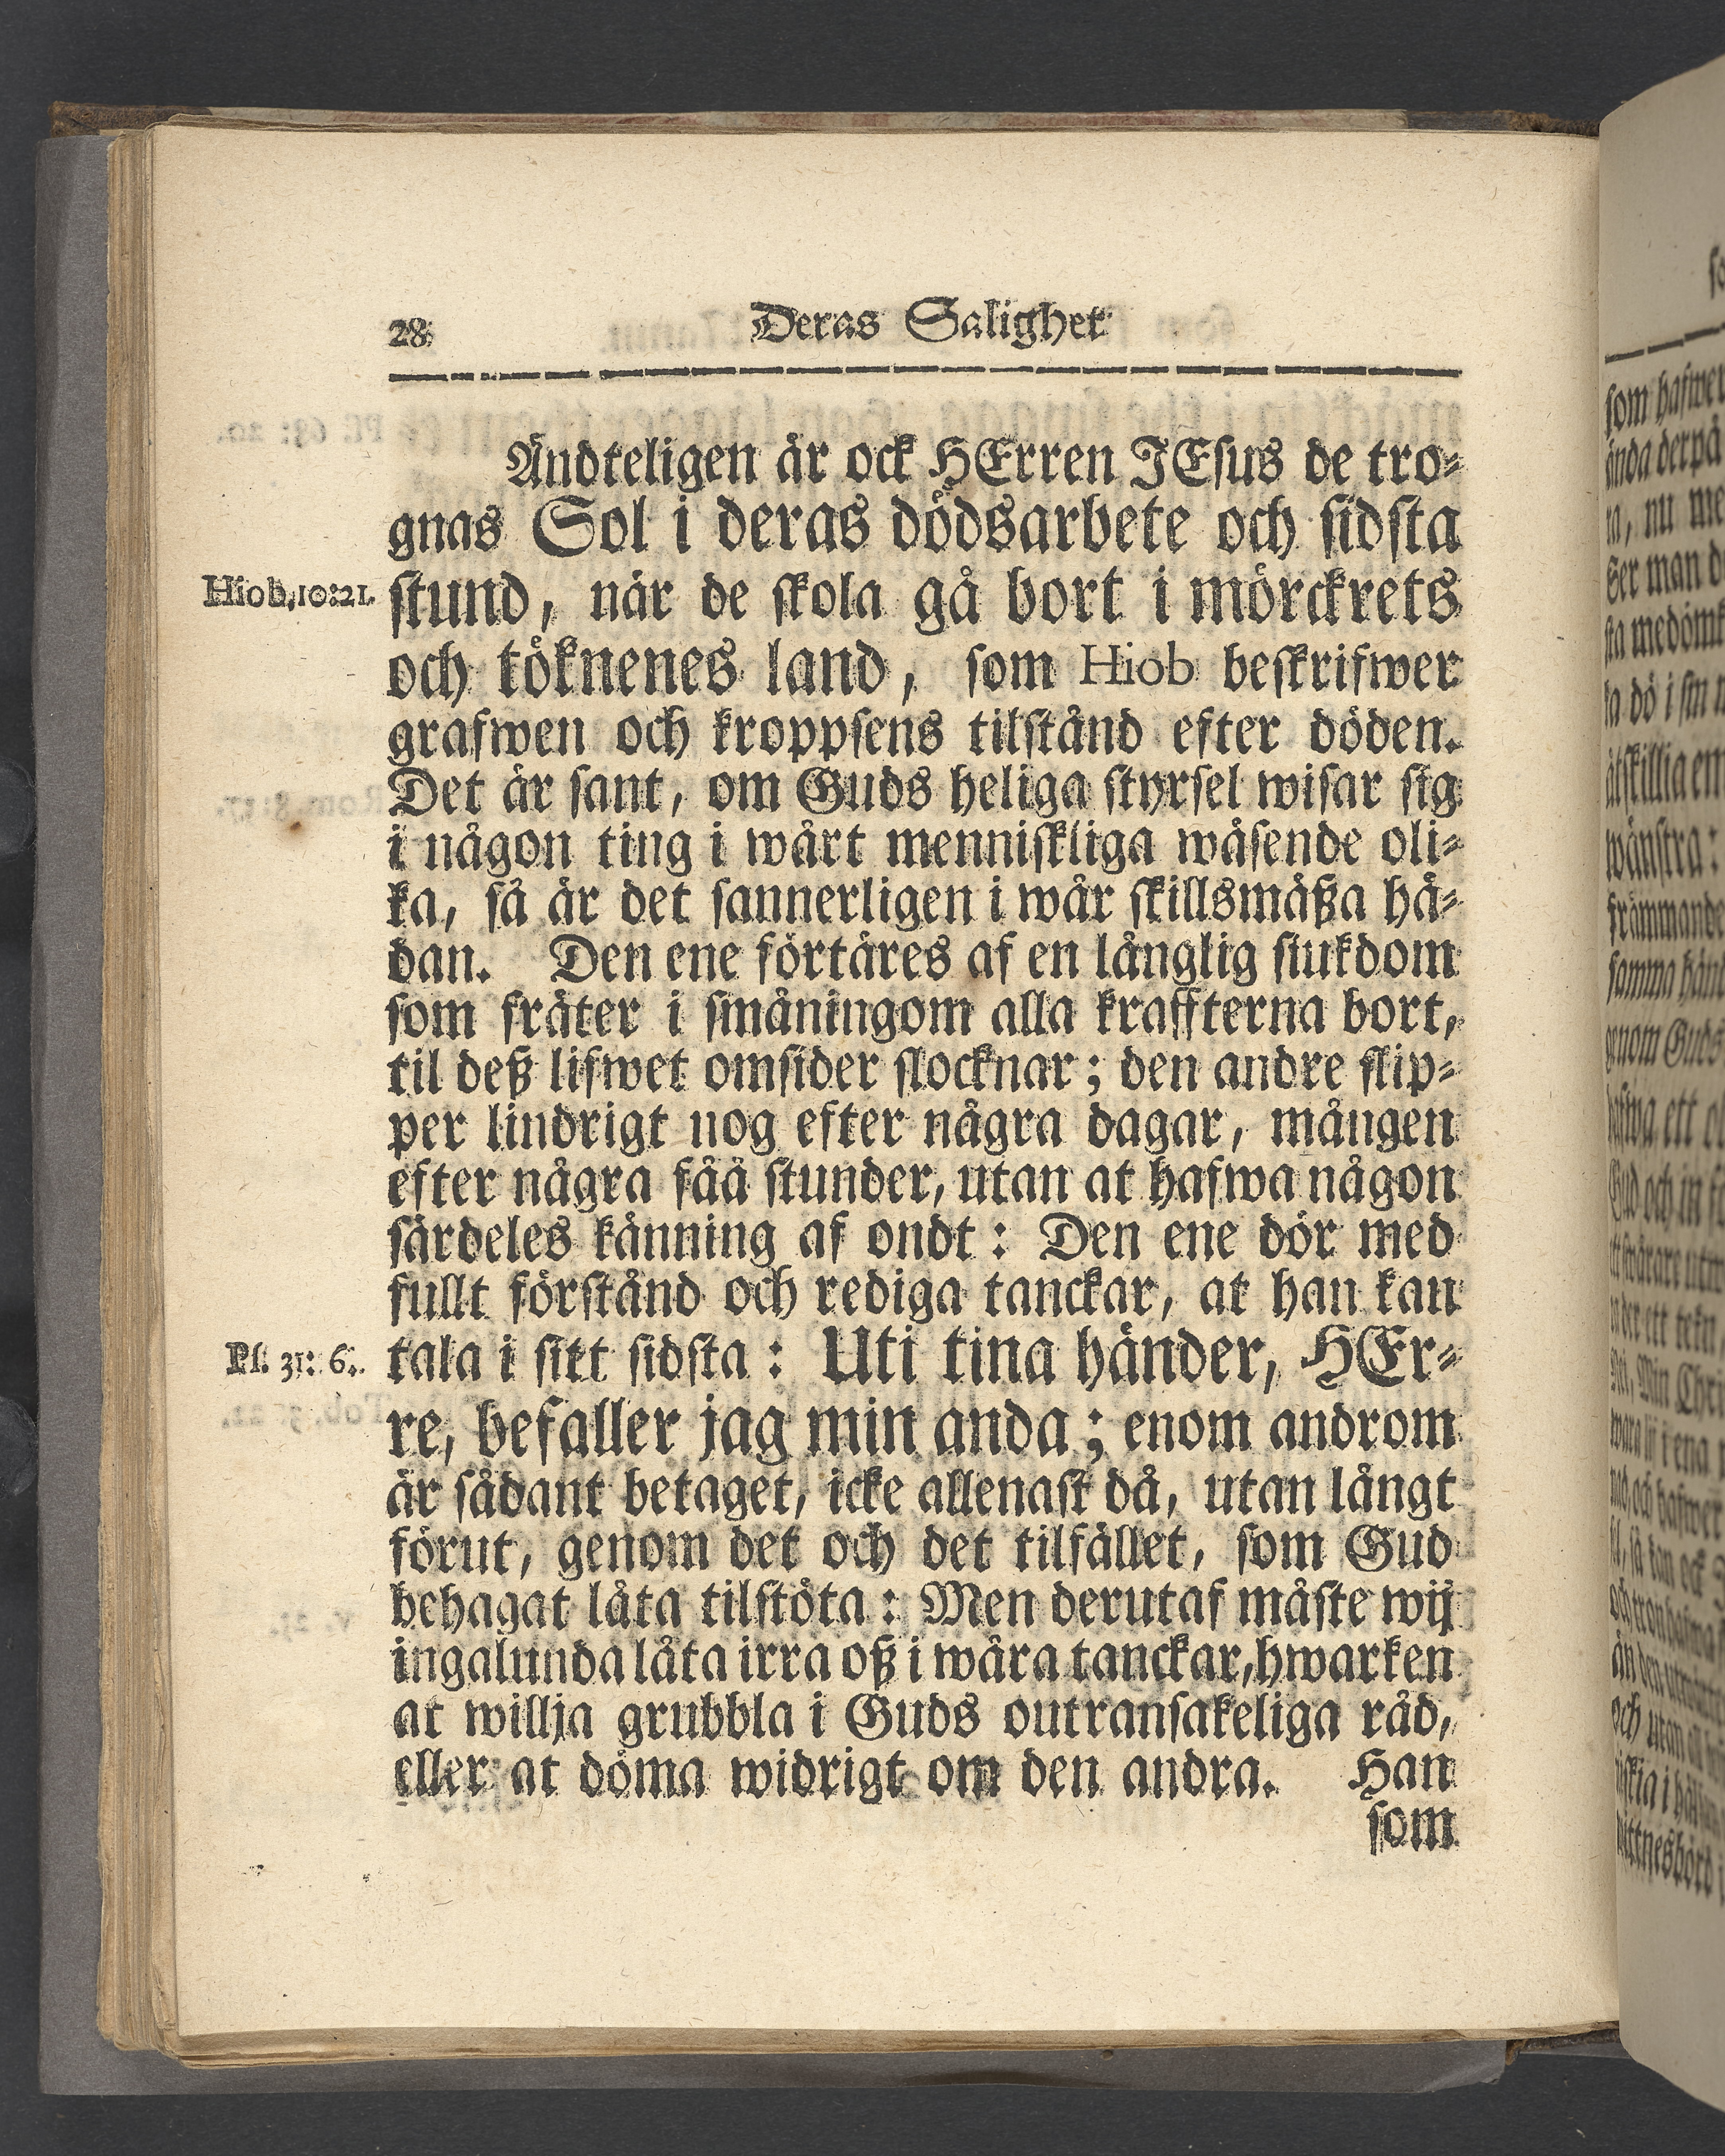 28 Deras Salighet
Ändteligen är ock HErren JEsus de tro-
gnas Sol i deras dödsarbete och sidsta
Hiob, 10:21. stund, när de skola gå bort i mörckrets
och töknenes land, som Hiob beskrifwer
grafwen och kroppsens tilstånd efter döden.
Det är sant, om Guds heliga styrsel wisar sig
i någon ting i wårt menniskliga wäsende oli-
ka, så är det sannerligen i wår skillsmäßa hä-
dan. Den ene förtäres af en långlig siukdom
som fräter i småningom alla kraffterna bort,
til deß lifwet omsider slocknar; den andre slip-
per lindrigt nog efter några dagar, mången
efter några fåå stunder, utan at hafwa någon
särdeles känning af ondt: Den ene dör med
fullt förstånd och rediga tanckar, at han kan
Ps. 31: 6. tala i sitt sidsta: Uti tina händer, HEr-
re, befaller jag min anda; enom androm
är sådant betaget, icke allenast då, utan långt
förut, genom det och det tilfället, som Gud
behagat låta tilstöta: Men derutaf måste wij
ingalunda låta irra oß i wåra tanckar, hwarken
at willja grubbla i Guds outransakeliga råd,
eller at döma widrigt om den andra. Han
som